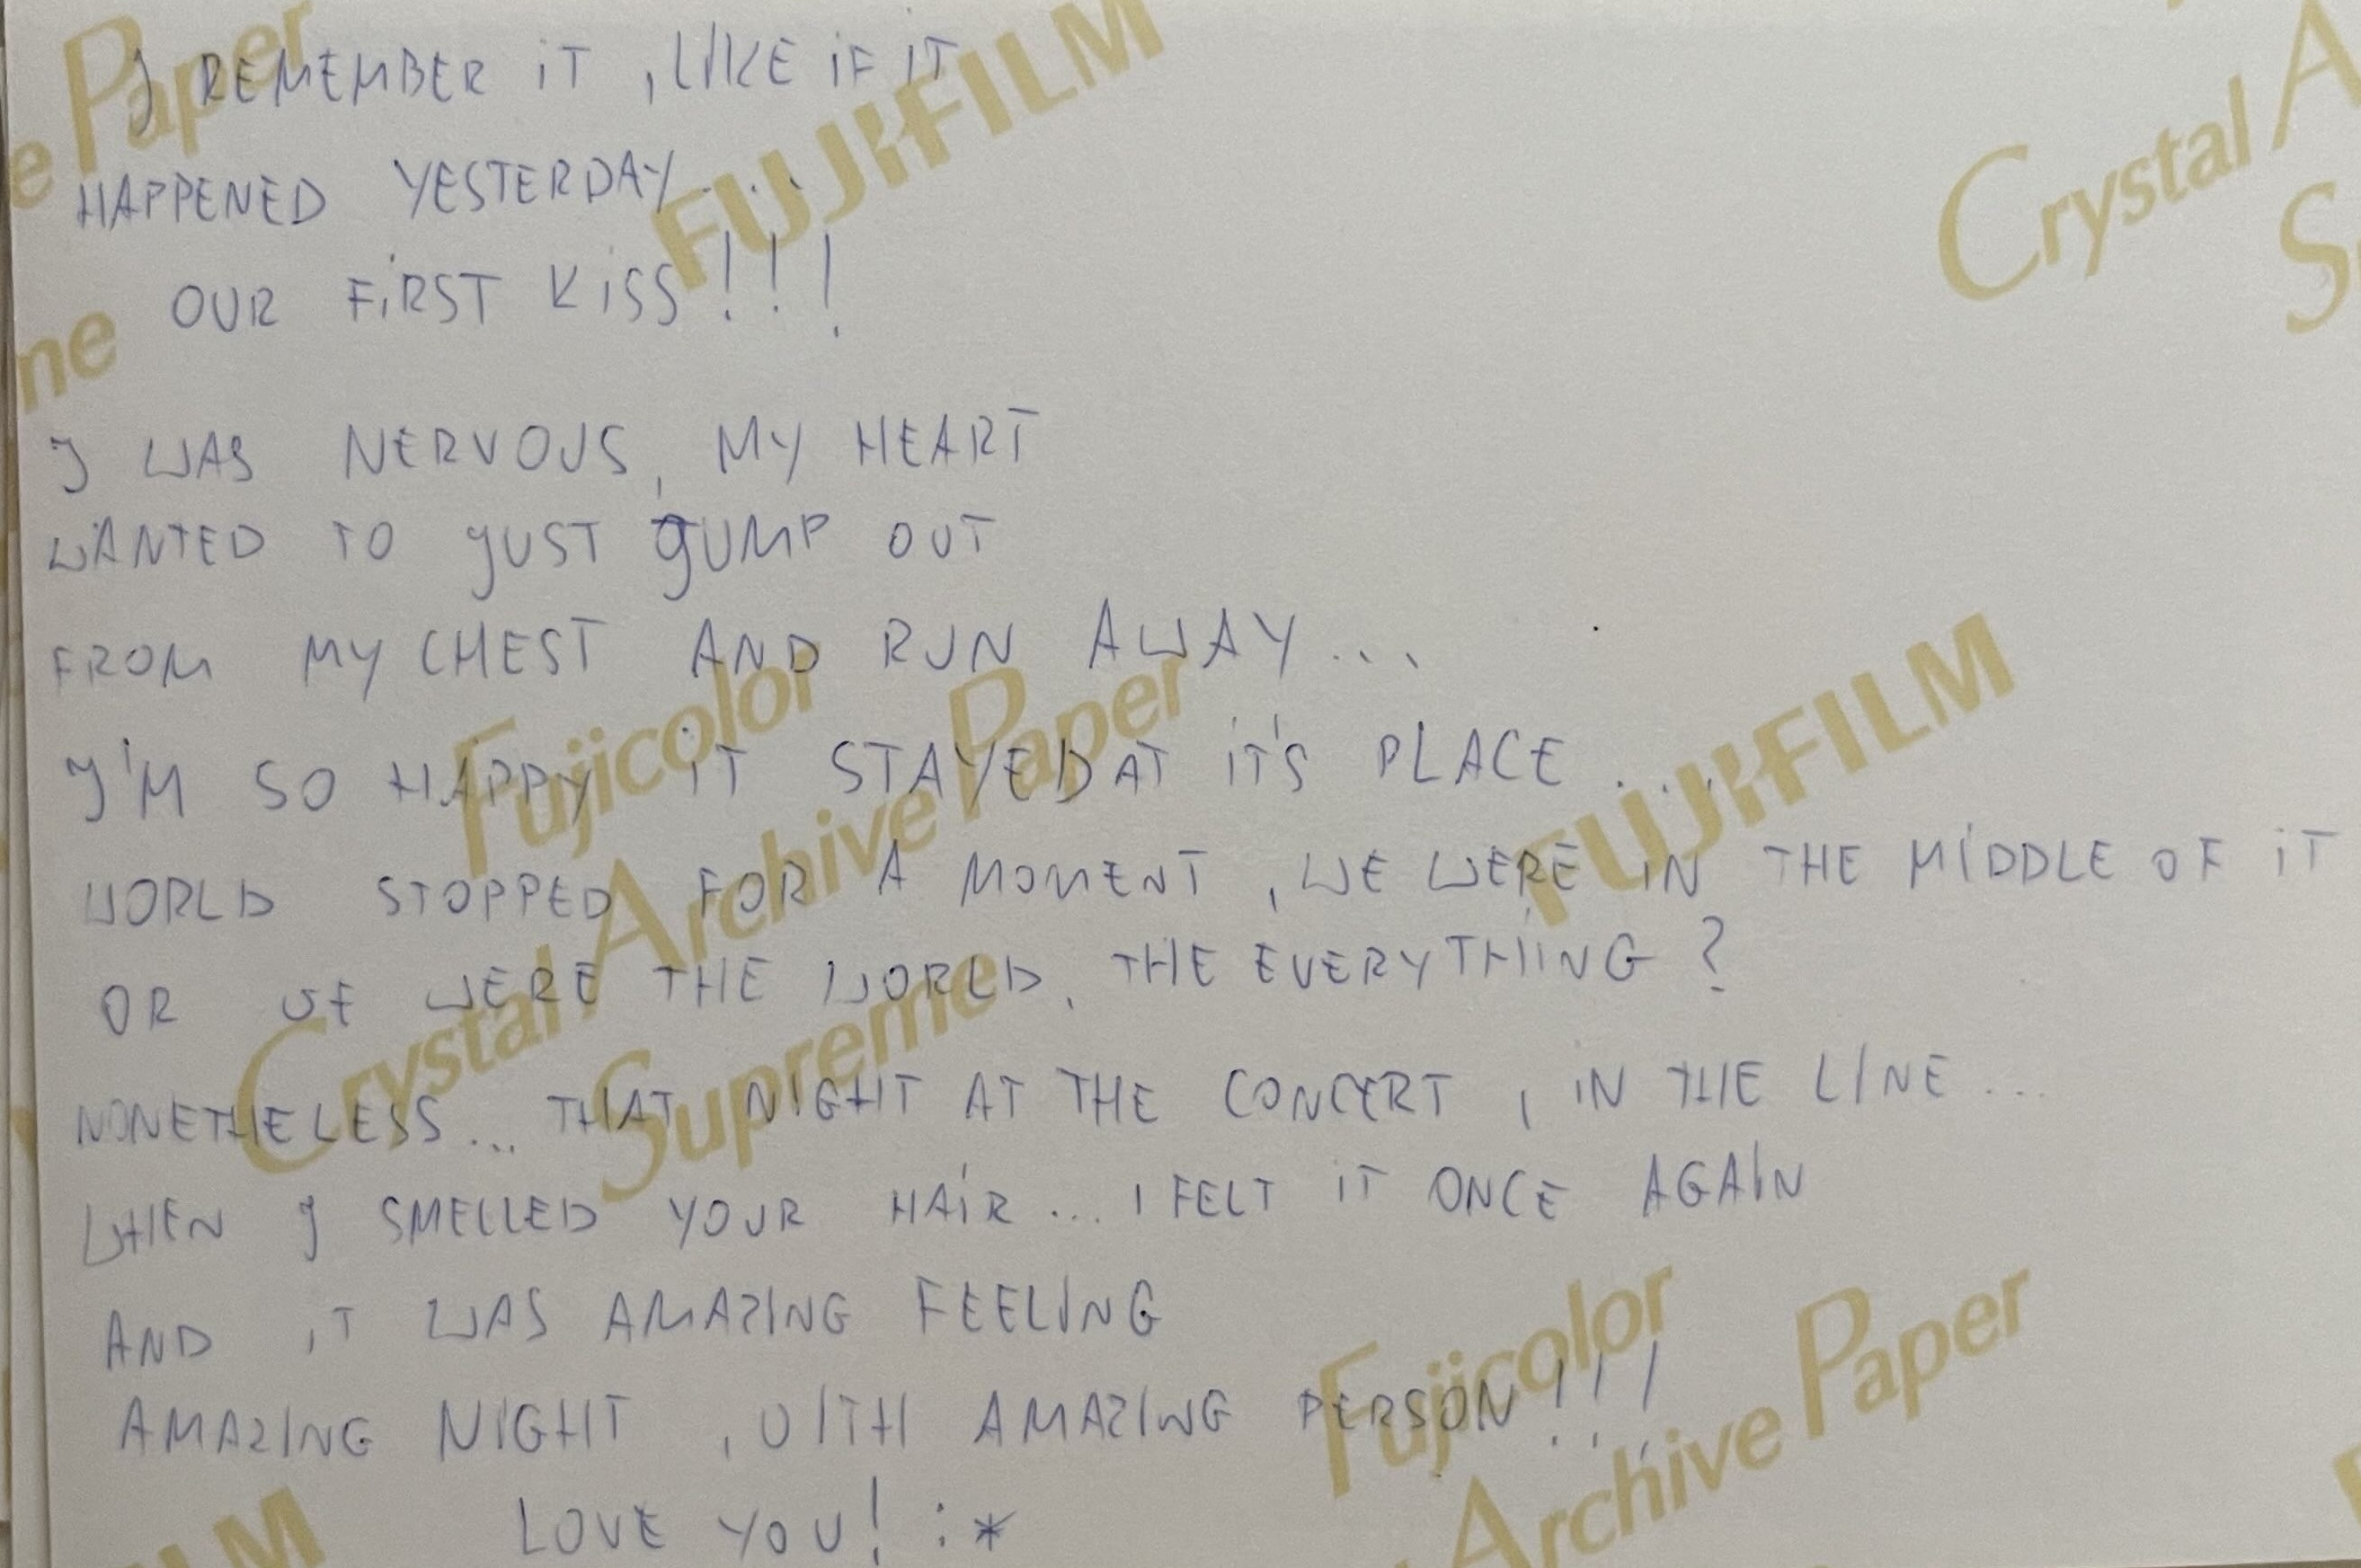 I REMEMBER IT , LIKE IF IT
HAPPENED YESTERDAY...
OUR FIRST KISS!!!
I WAS NERVOUS, MY HEART
WANTED TO JUST JUMP OUT
FROM MY CHEST AND RUN AWAY...
I'M SO HAPPY IT STAYED AT IT'S PLACE ...
WORLD STOPPED FOR A MOMENT , WE WERE IN THE MIDDLE OF IT
OR WE WERE THE WORLD, THE EVERYTHING ?
NONETHELESS... THAT NIGHT AT THE CONCERT , IN THE LINE ...
WHEN I SMELLED YOUR HAIR ... I FELT IT ONCE AGAIN
AND IT WAS AMAZING FEELING
AMAZING NIGHT , WITH AMAZING PERSON!!!
LOVE YOU! :*
e Paper
FUJIFILM
Crystal A
ne
Fujicolor
Crystal Archive Paper
Supreme
FUJIFILM
Fujicolor
Archive Paper
LM